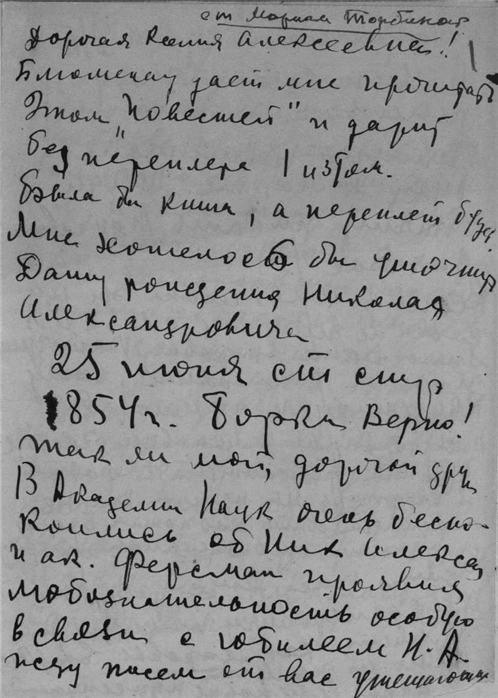 от Марии
Дорогая Ксения Алексеевна!
дает мне прочитать
Этом "Повестей" и дарит
без переплера 1 изтом.
Была бы книга, а переплет буде
Мне хотелось бы уточнить
Дату рождения Николая
Александровича
25 июня ст стир
1854 г. Борки Верно!
так ли мой, дорогой друг
В Академии Наук очень беспо-
коились об Ник Алексан
и ак. Ферсман проявил
любознательность особую
в связи с юбилеем Н. А.
жду писем от вас